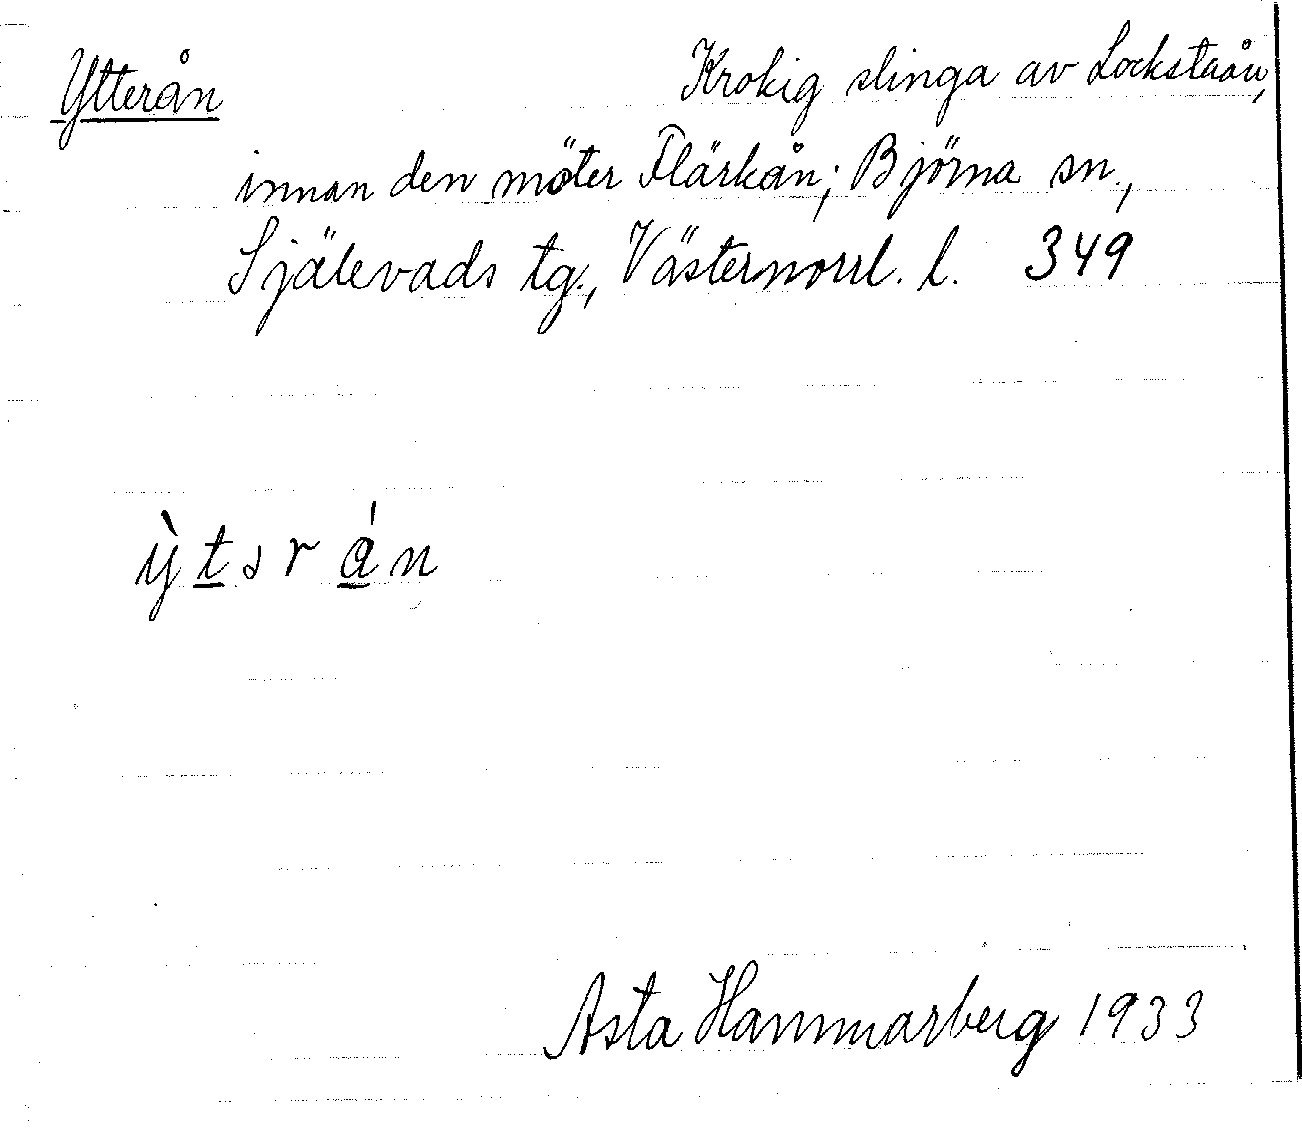 Ytterån Krokig slinga av Lockstaån,
innan den möter Flärkån; Björna sn.,
Själevads tg., Västernorrl. l. 349
ỳtsrán
Asta Hammarberg 1933